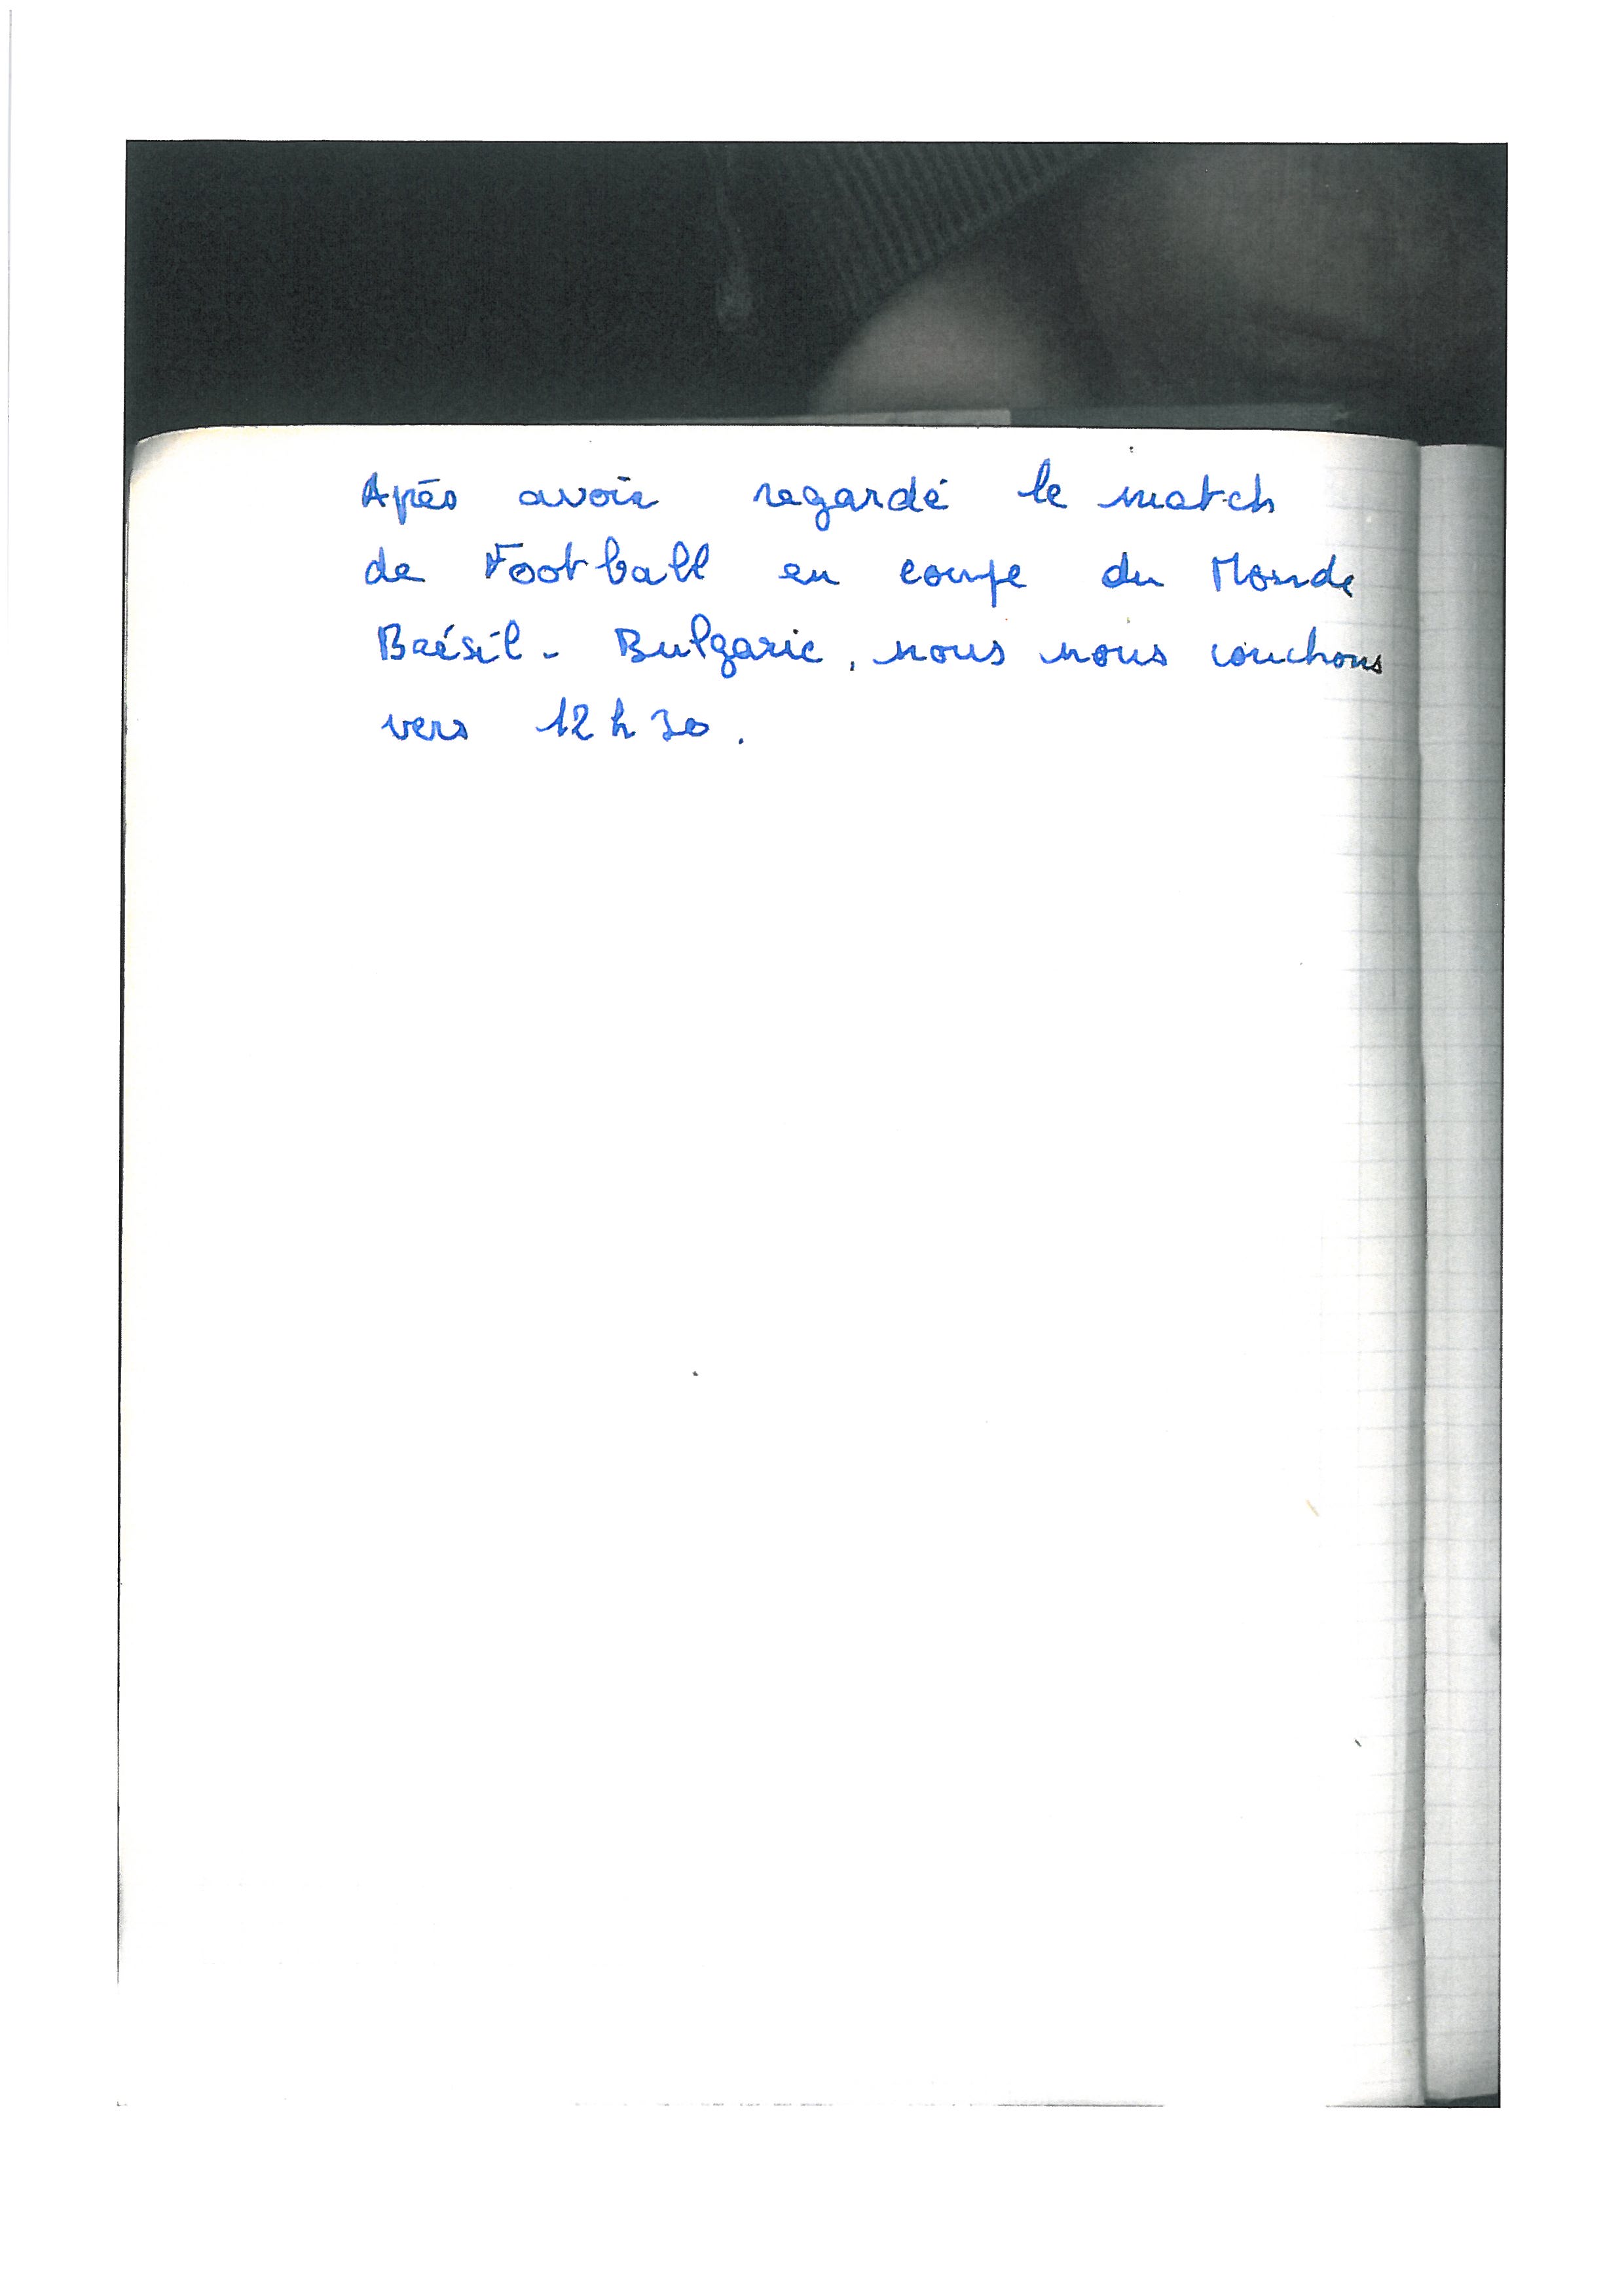 Après avoir regardé le match
de Football en coupe du Monde
Brésil - Bulgarie, nous nous couchons
vers 12 h 30.